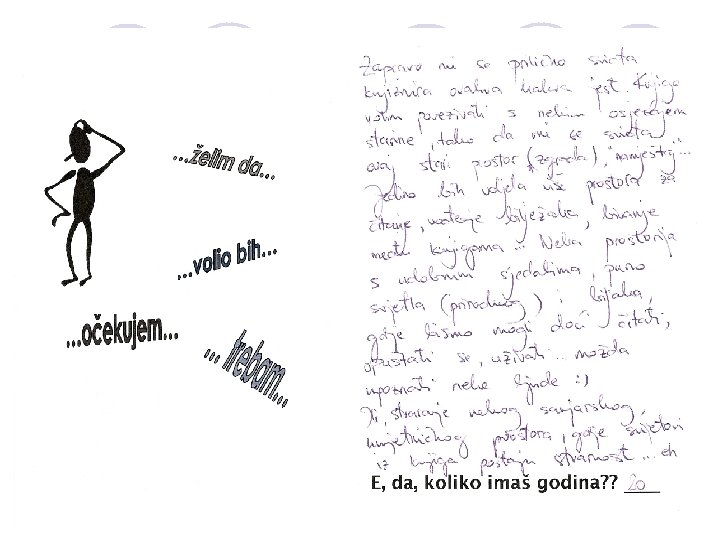 ...želim da...
...volio bih...
...očekujem...
...trebam...
Zapravo mi se prilično sviđa
knjižnica ovakva kakva jest. Knjige
volim povezivati s nekim osjećajem
starine, tako da mi se sviđa
ovaj stari prostor (zgrada), "namještaj"...
Jedino bih voljela više prostora za
čitanje, vođenje bilježaka, bivanje
među knjigama... Neka prostorija
s udobnim sjedalima, puno
svjetla (prirodnog) i biljaka,
gdje bismo mogli doći čitati,
opuštati se, uživati... možda
upoznati neke ljude :)
Ili, stvaranje nekog sanjarskog,
umjetničkog prostora, gdje svjetovi
iz knjiga postaju stvarnost... eh
E, da, koliko imaš godina?? 20